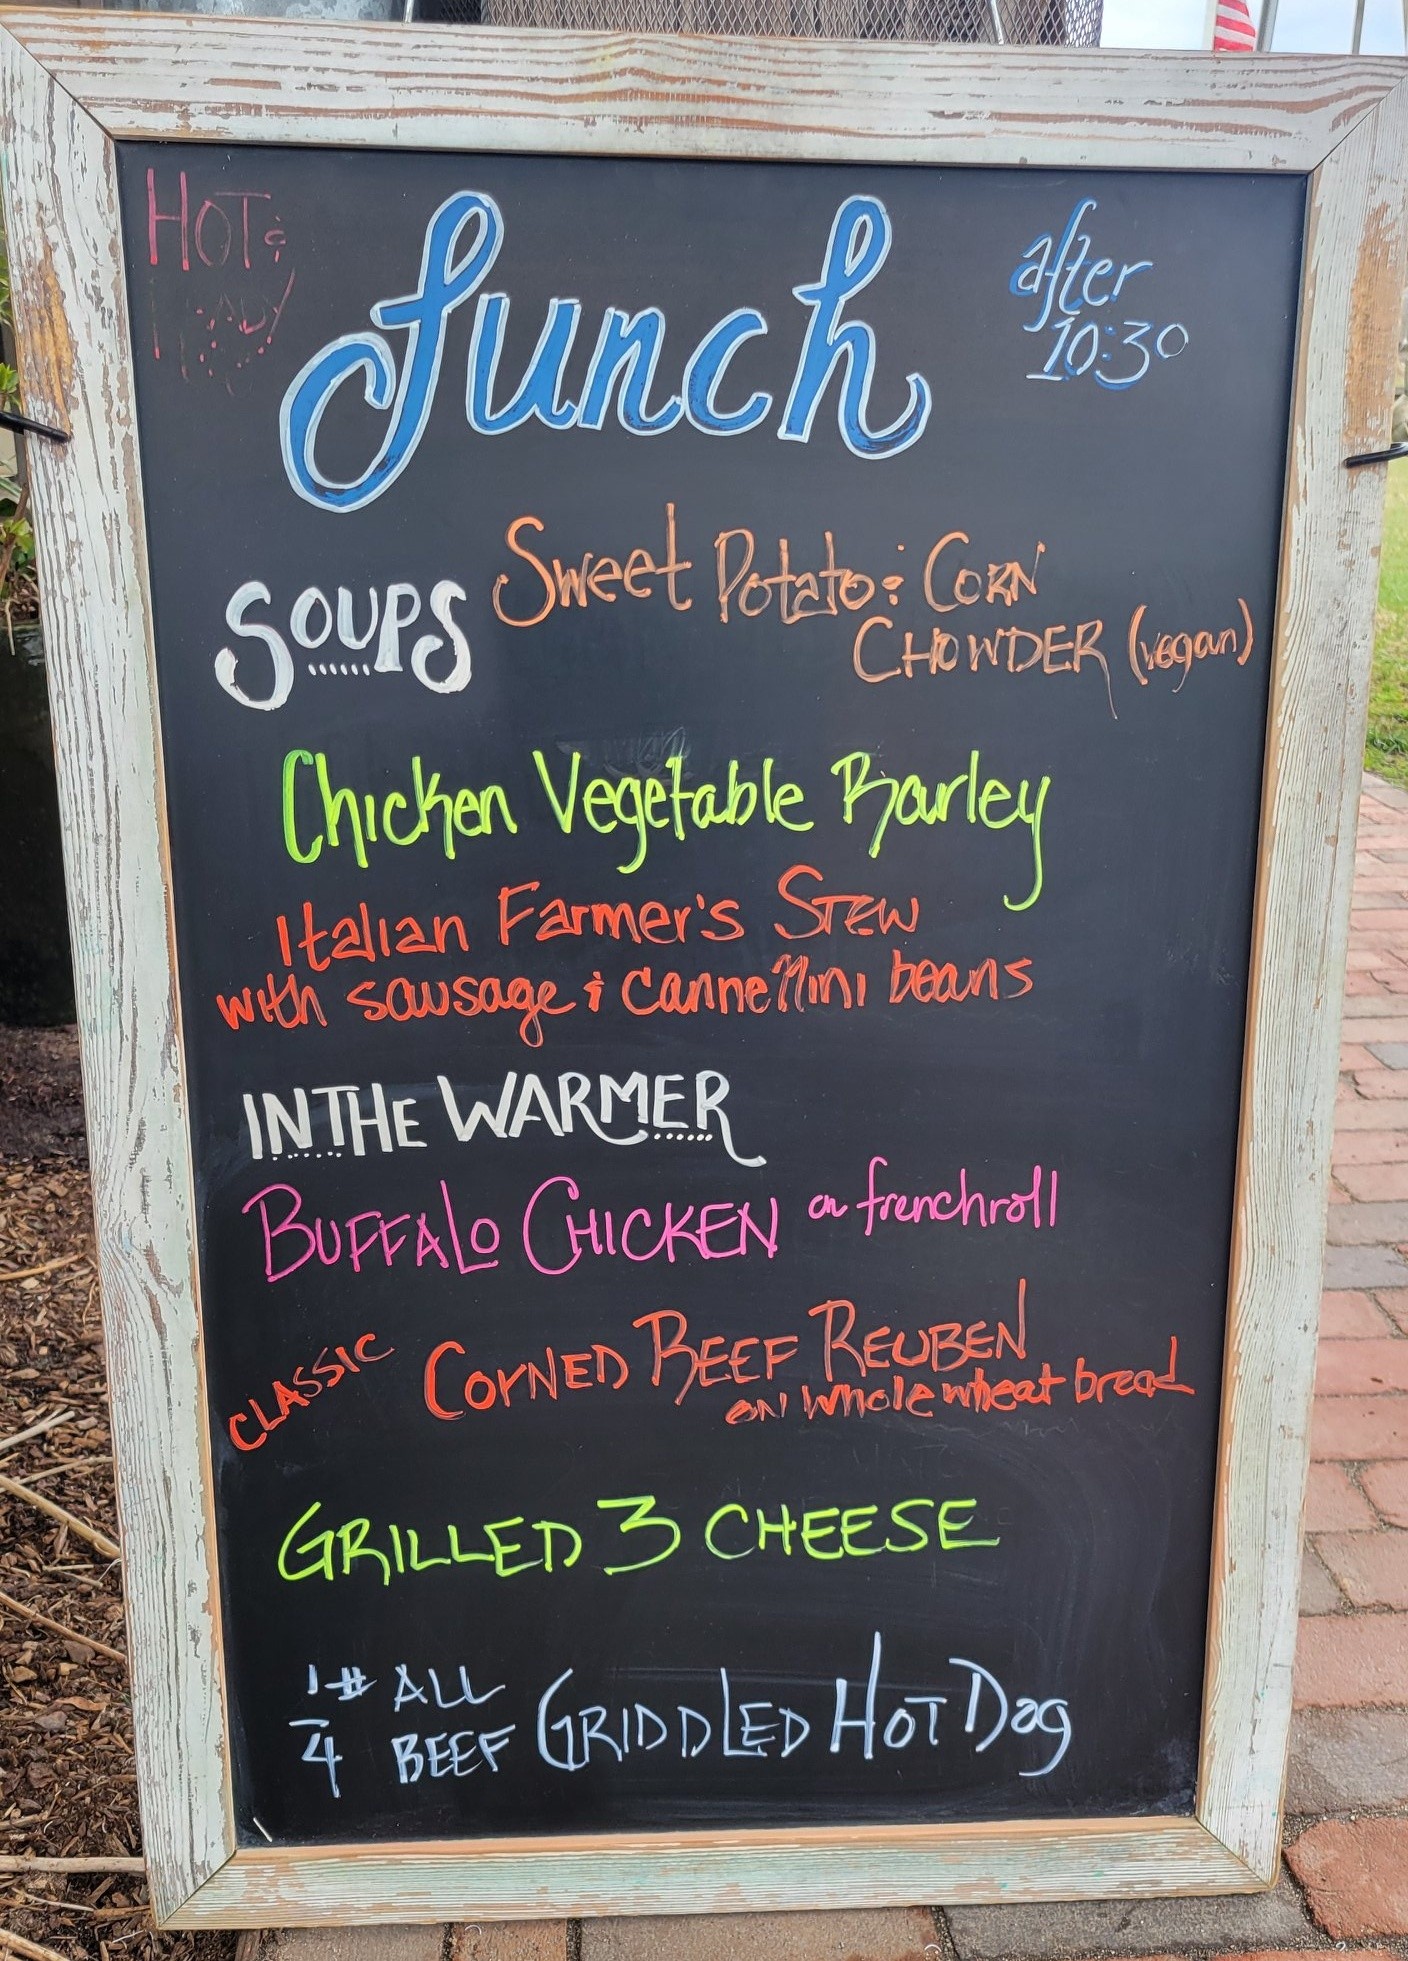 HOT &
READY
Lunch
after
10:30
SOUPS
Sweet Potato & CORN
CHOWDER (vegan)
Chicken Vegetable Barley
Italian Farmer's STEW
with sausage & cannellini beans
IN THE WARMER
BUFFALO CHICKEN on french roll
CLASSIC CORNED BEEF REUBEN
ON whole wheat bread
GRILLED 3 CHEESE
1/4 # ALL
BEEF GRIDDLED HOT Dog